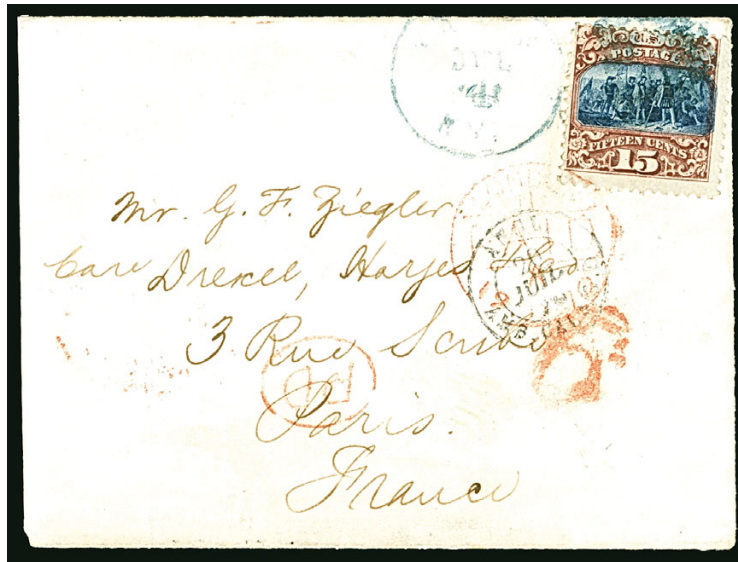 JUL
N.Y.
U.S.
POSTAGE
FIFTEEN CENTS
15
Mr. G. F. Ziegler
Care Drexel, Harjes & Co
JUIL
3 Rue Scribe
PD
Paris.
France